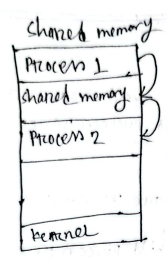 shared memory
Process 1
shared memory
Process 2
kernel